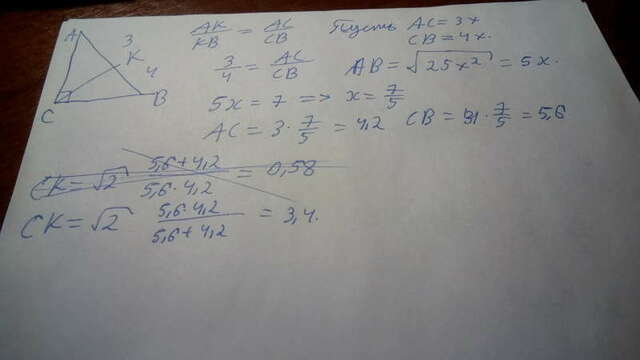 A
3
K
4
C
B
AK/KB = AC/CB
Пусть AC = 3x
CB = 4x.
3/4 = AC/CB
AB = √25x² = 5x.
5x = 7 => x = 7/5
AC = 3 · 7/5 = 4,2
CB = 4 · 7/5 = 5,6
CK = √2 5,6+4,2/5,6·4,2 = 0,58
CK = √2 5,6·4,2/5,6+4,2 = 3,4.